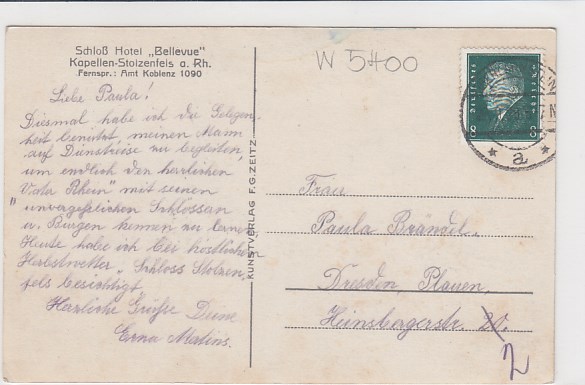 Schloß Hotel „Bellevue"
Kapellen-Stolzenfels a. Rh.
Fernspr.: Amt Koblenz 1090
Liebe Paula!
Diesmal habe ich die Gelegen-
heit benützt meinen Mann
auf Dienstreise zu begleiten,
um endlich den herrlichen
„Vata Rhein" mit seinen
unvergesslichen Schlossan
u. Burgen kennen zu lerne
Heute habe ich bei köstlichen
Herbstwetter „Schloss Stolzen
fels besichtigt
Herzliche Grüße Deine
Erna Martins.
KUNSTVERLAG F.G.ZEITZ
W 5400
8 8
* a *
Frau
Paula Brändel.
Dresden Plauen.
Heinsbergerstr. 20.
2